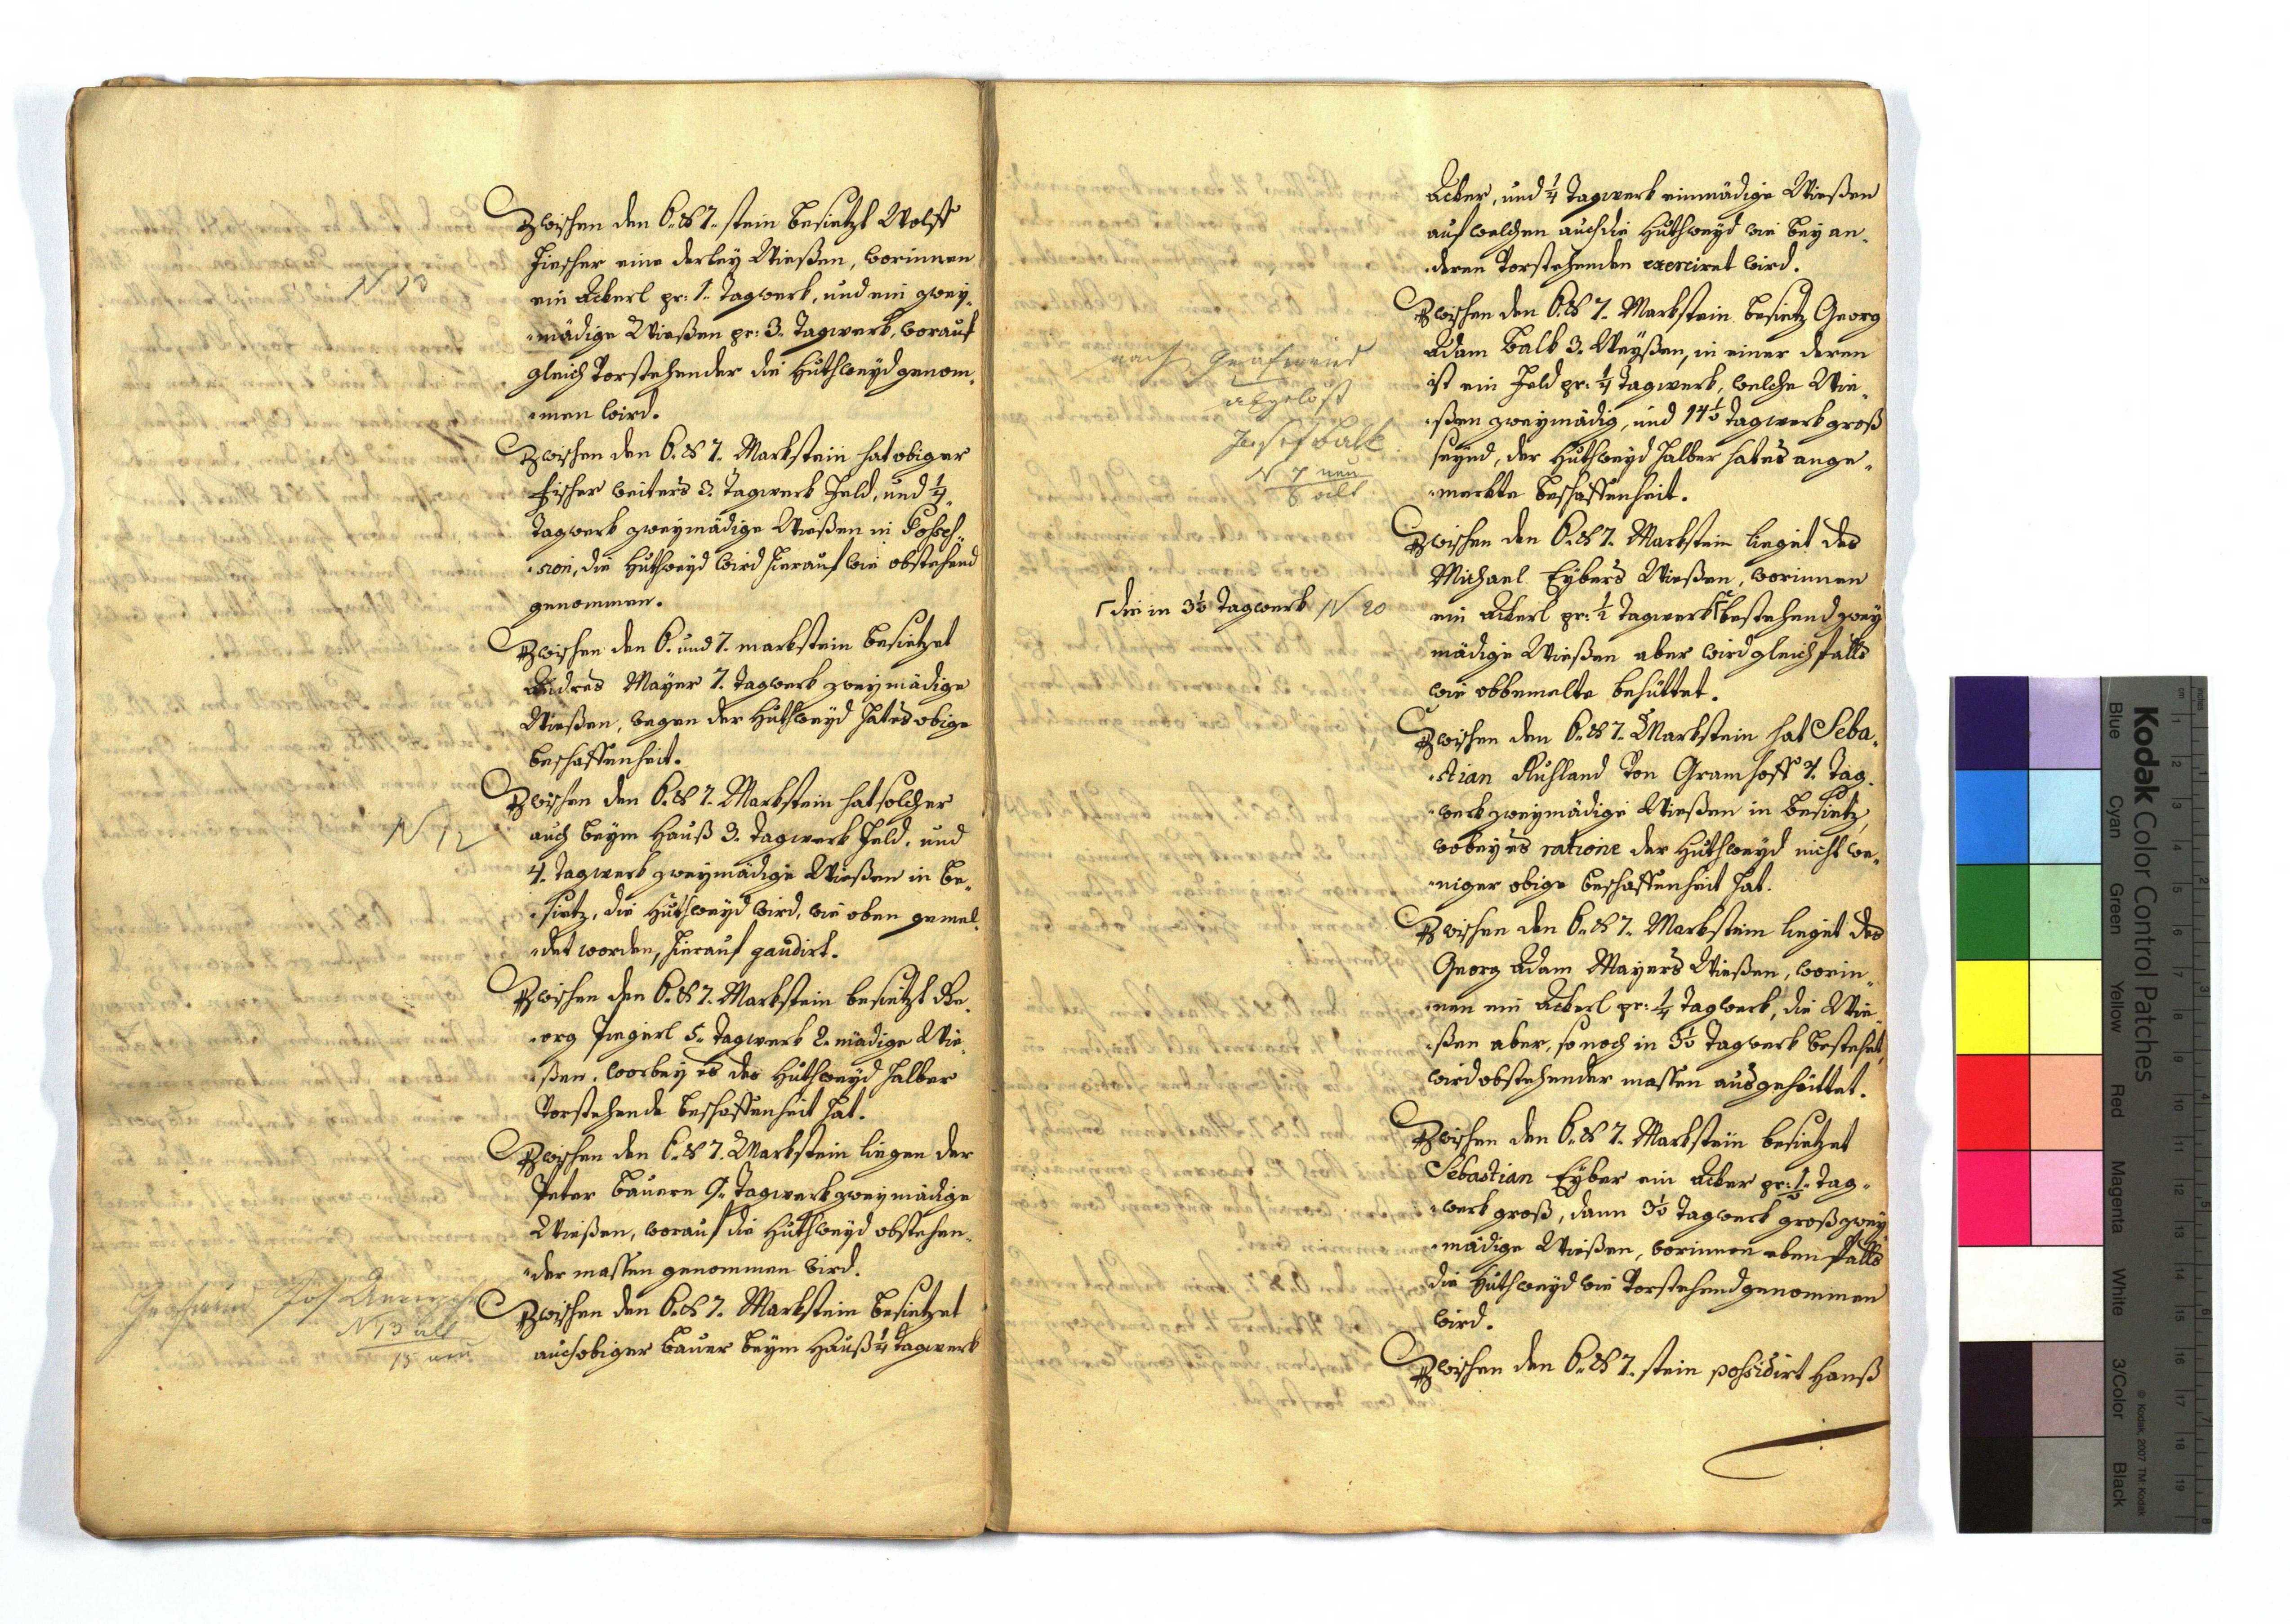 Zwischen den 6. & 7. stein besietzt Wolff
Fischer eine derley Wießen, worinnen
ein Äckerl pr: 1. Tagwerk, und ein zwey-
mädige Wießen pr: 3. Tagwerk, worauf
gleich vorstehender die Huthweyd genom-
men wird.
N 13
Zwischen den 6. & 7. Markstein hat obiger
Fischer weiters 3. Tagwerk Feld, und 1/4
Tagwerk zweymädige Wießen in Posses-
sion, die Huthweyd wird hierauf wie obstehend
genommen.
Zwischen den 6. und 7. markstein besietzet
Andres Mayer 7. Tagwerk zweymädige
Wießen, wegen der Huthweyd hat's obige
beschaffenheit.
Zwischen den 6. & 7. Markstein hat solcher
auch beym Hauß 3. Tagwerk Feld, und
4. Tagwerk zweymädige Wießen in Be-
sietz, die Huthweyd wird, wie oben gemel-
det worden, hierauf gaudirt.
N 12
Zwischen den 6. & 7. Markstein besietzt Ge-
org Piegerl 5. Tagwerk 2. mädige Wie-
ßen, worbey es der Huthweyd halber
vorstehende beschaffenheit hat.
Zwischen den 6. & 7. Markstein liegen der
Peter Bauern 9. Tagwerk zweymädige
Wießen, worauf die Huthweyd obstehen-
der massen genommen wird.
Zwischen den 6. & 7. Markstein besietzet
auch obiger Bauer beym Hauß 1/4 Tagwerk
N 13 alt
15 neu
Acker, und 1/4 Tagwerk einmädige Wießen
auf welchen auch die Huthweyd wie bey an-
deren vorstehenden exerciret wird.
Zwischen den 6. & 7. Markstein besietz Georg
Adam Balk 3. Weyßen, in einer deren
ist ein Feld pr: 1/4 Tagwerk, welche Wie-
ßen zweymädig, und 14 1/2 Tagwerk groß
seynd, der Huthweyd halber hat's ange-
merkte beschaffenheit.
nach Grafwind
abgelöst
Josef Balk
N 7 neu
8 alt
Zwischen den 6. & 7. Markstein lieget des
Michael Eyber's Wießen, worinnen
ein Äckerl pr: 1/2 Tagwerk bestehend zwey
mädige Wießen aber wird gleichfalls
wie obbemelte behüttet.
die in 3 1/2 Tagwerk N 20
Zwischen den 6. & 7. Markstein hat Seba-
stian Ruhland von Gramhoff 7. Tag-
werk zweymädige Wießen in besietz,
wobey es ratione der Huthweyd nicht we-
niger obige beschaffenheit hat.
Zwischen den 6. & 7. Markstein lieget des
Georg Adam Mayer's Wießen, worin-
nen ein Äckerl pr: 1/4 Tagwerk, die Wie-
ßen aber, so noch in 5 1/2 Tagwerk bestehet,
wird obstehender massen ausgehüttet.
Zwischen den 6. & 7. Markstein besietzet
Sebastian Eyber ein Acker pr: 1. Tag-
werk groß, dann 3 1/2 Tagwerk groß zwey
mädige Wießen, worinnen ebenfalls
die Huthweyd wie vorstehend genommen
wird.
Zwischen den 6. & 7. stein possidirt Hanß
Kodak Color Control Patches
Blue Cyan Green Yellow Red Magenta White 3/Color Black
© Kodak, 2007 TM: Kodak
cm 1 2 3 4 5 6 7 8 9 10 11 12 13 14 15 16 17 18 19
inches 1 2 3 4 5 6 7 8